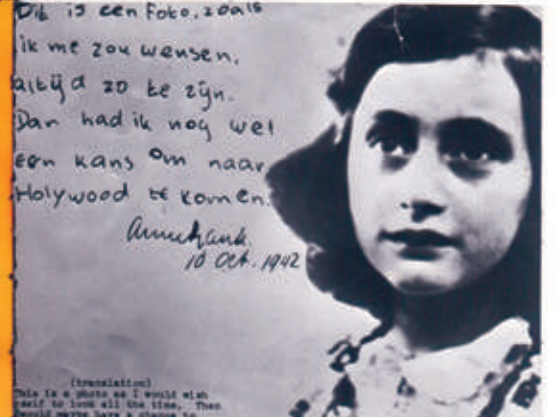 Dit is een foto, zoals
ik me zou wensen,
altijd zo te zijn.
Dan had ik nog wel
een kans om naar
Holywood te komen.
Annefrank.
10 Oct. 1942
(translation)
This is a photo as I would wish
myself to look all the time. Then
I would maybe have a chance to